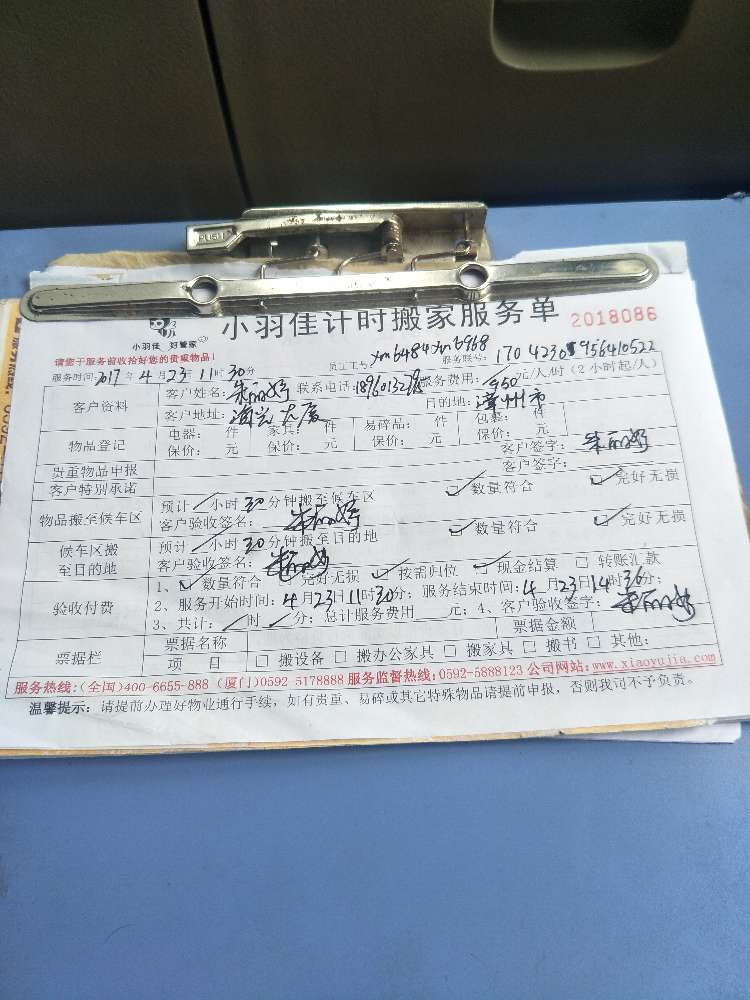 PUSH
小羽佳计时搬家服务单 2018086
小羽佳 好管家
请您于服务前收拾好您的贵重物品！ 员工工号 xm6484 xm6968 服务账号：
服务时间：2017年4月23日11时30分
客户资料 客户姓名：朱丽婷 联系电话： 服务费用：950元/人/时（2小时起/人）
客户地址：海兴大厦 目的地：漳州市
物品登记 电器： 件 家具： 件 易碎品： 件 包裹： 件
保价： 元 保价： 元 保价： 元 保价： 元
贵重物品申报 客户签字：朱丽婷
客户特别承诺 客户签字：
物品搬至候车区 预计 小时30分钟搬至候车区 数量符合 完好无损
客户验收签名：朱丽婷
候车区搬至目的地 预计 小时30分钟搬至目的地 数量符合 完好无损
客户验收签名：朱丽婷
验收付费 1、数量符合 完好无损 按需归位 现金结算 转账汇款
2、服务开始时间：4月23日11时30分；服务结束时间：4月23日14时36分；
3、共计： 时 分；总计服务费用 元；4、客户验收签字：朱丽婷
票据栏 票据名称 票据金额
项 目 □ 搬设备 □ 搬办公家具 □ 搬家具 □ 搬书 □ 其他：
服务热线：(全国)400-6655-888 (厦门)0592-5178888 服务监督热线：0592-5888123 公司网站：www.xiaoyujia.com
温馨提示：请提前办理好物业通行手续，如有贵重、易碎或其它特殊物品请提前申报，否则我司不予负责。